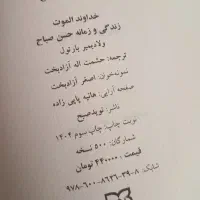 خداوند الموت
زندگی و زمانه حسن صباح
ولادیمیر بارتول
ترجمه: حشمت اله آزادبخت
نمونه‌خوان: اصغر آزادبخت
صفحه آرایی: هانیه پاپی زاده
ناشر: نویدصبح
نوبت چاپ: چاپ سوم ۱۴۰۲
شمارگان: ۵۰۰ نسخه
قیمت: ۴۴۰۰۰۰ تومان
شابک: ۸-۳۹-۸۶۳۶-۶۰۰-۹۷۸